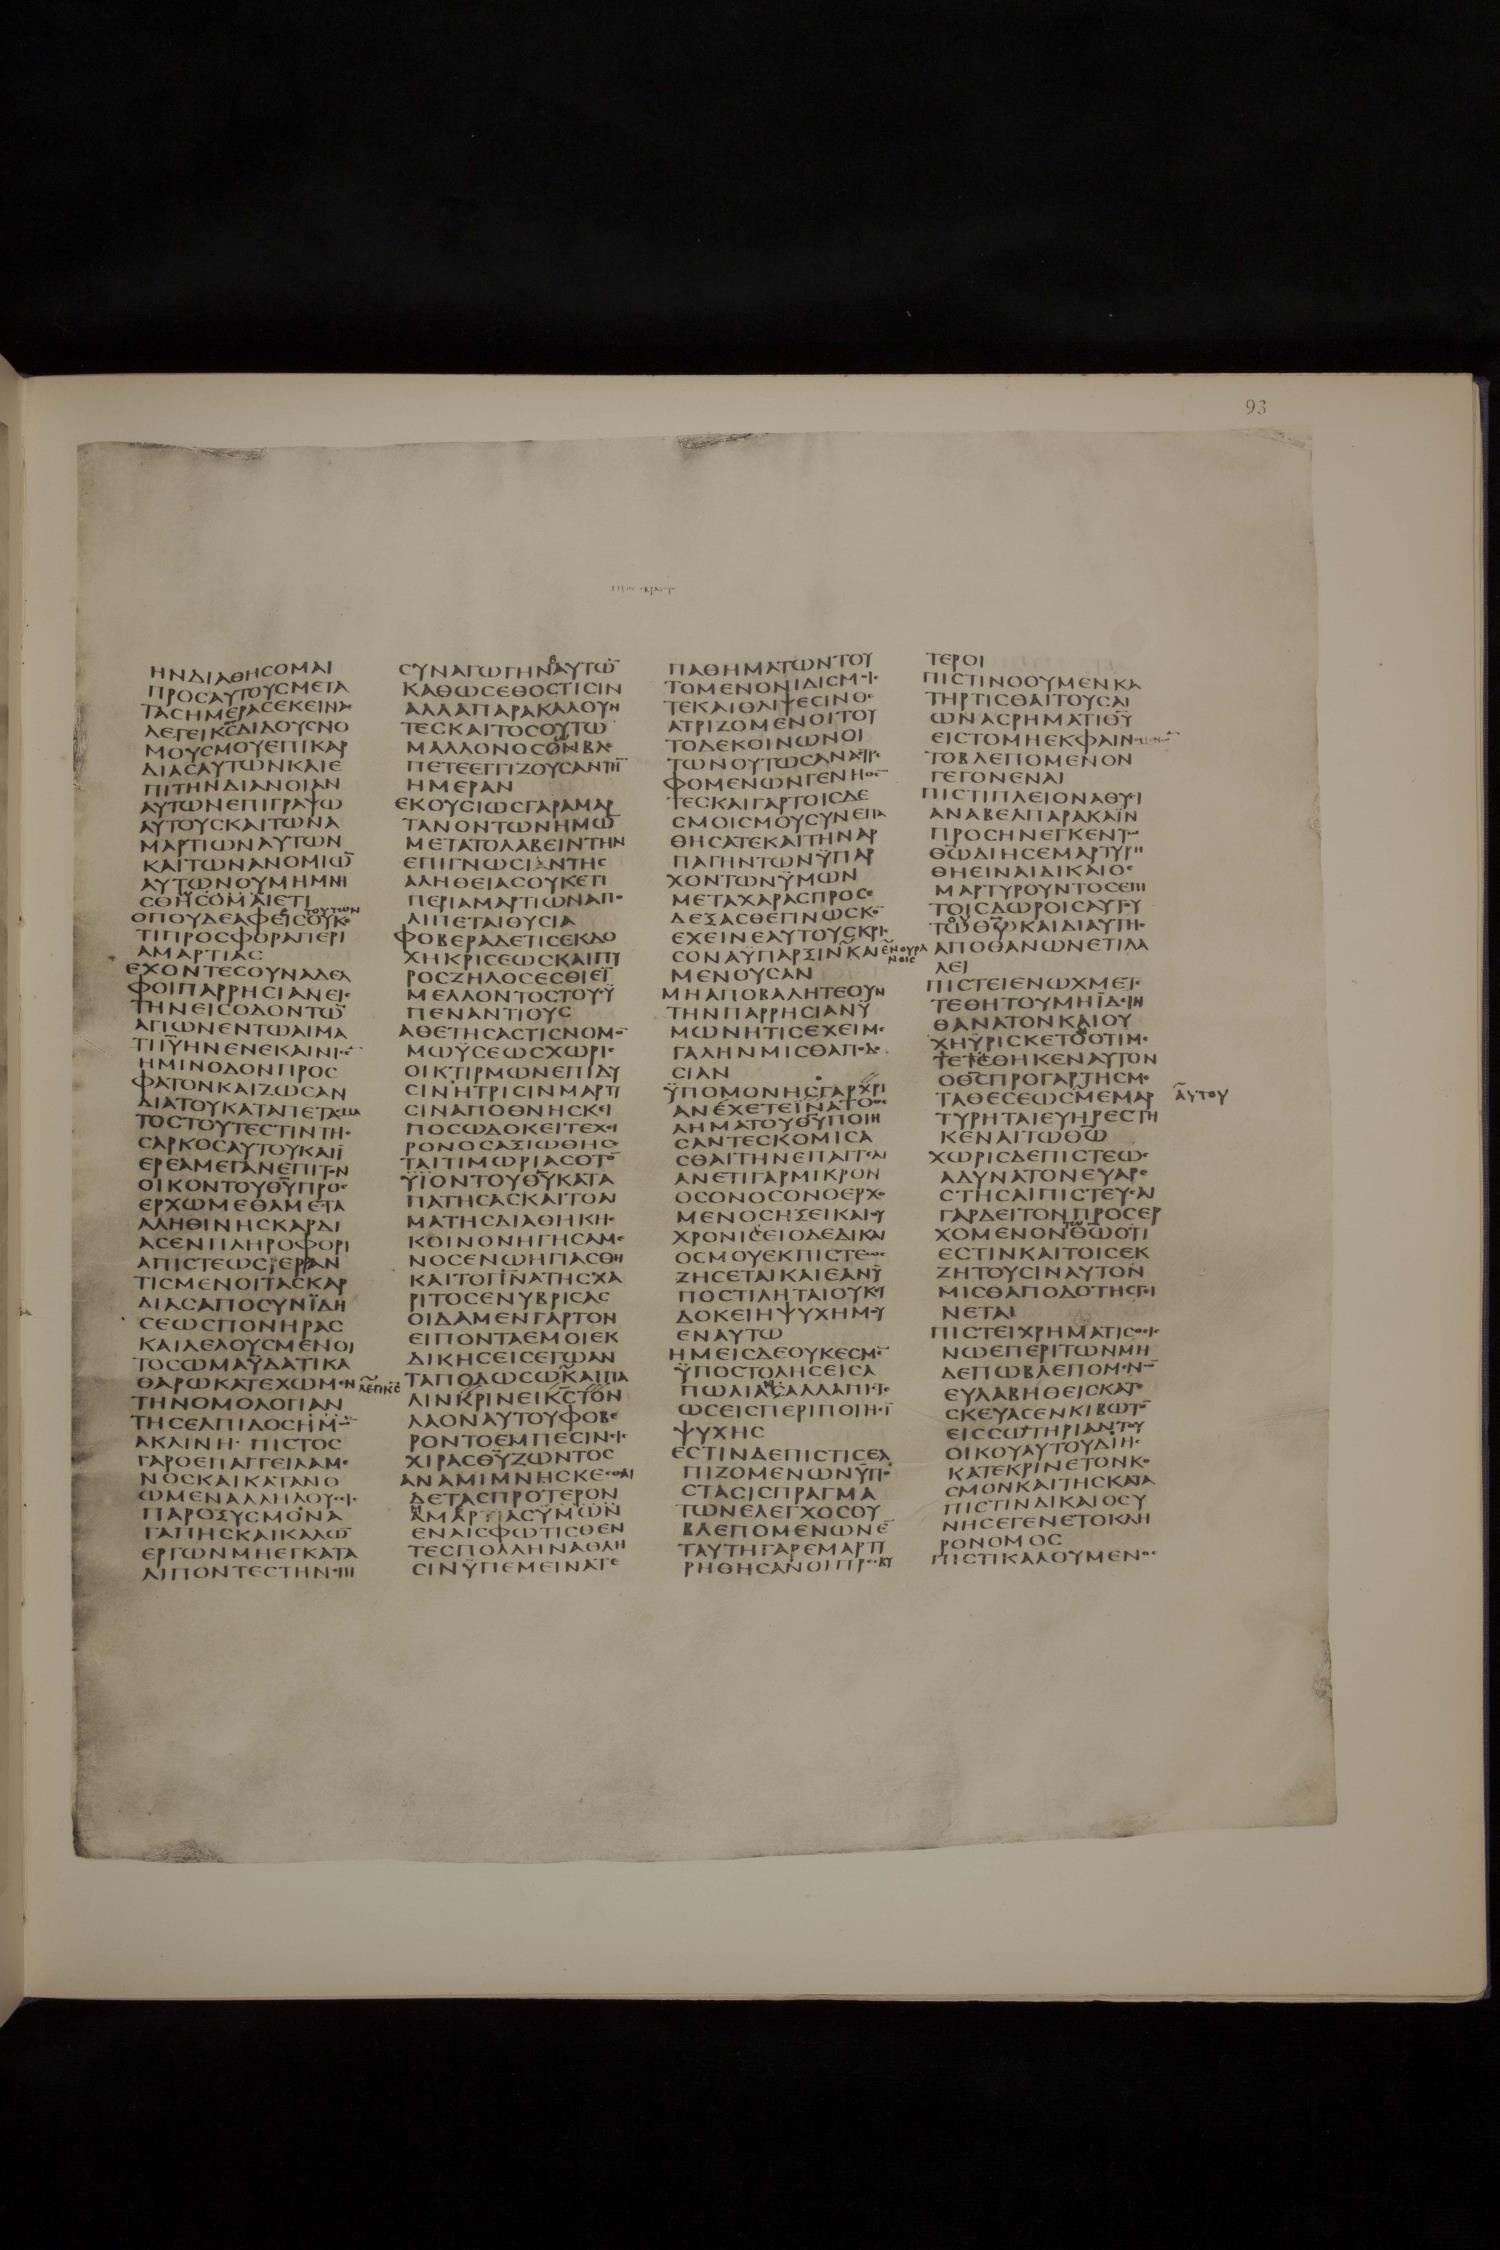 93
ΗΝΔΙΑΘΗϹΟΜΑΙ
ΠΡΟϹΑΥΤΟΥϹΜΕΤΑ
ΤΑϹΗΜΕΡΑϹΕΚΕΙΝΑϹ
ΛΕΓΕΙΚϹΔΙΔΟΥϹΝΟ
ΜΟΥϹΜΟΥΕΠΙΚΑΡ
ΔΙΑϹΑΥΤΩΝΚΑΙΕ
ΠΙΤΗΝΔΙΑΝΟΙΑΝ
ΑΥΤΩΝΕΠΙΓΡΑΨΩ
ΑΥΤΟΥϹΚΑΙΤΩΝΑ
ΜΑΡΤΙΩΝΑΥΤΩΝ
ΚΑΙΤΩΝΑΝΟΜΙΩ̅
ΑΥΤΩΝΟΥΜΗΜΝΗ
ϹΘΗϹΟΜΑΙΕΤΙ
ΟΠΟΥΔΕΑΦΕϹΙϹΤΟΥΤΩΝΟΥΚΕ
ΤΙΠΡΟϹΦΟΡΑΠΕΡΙ
ΑΜΑΡΤΙΑϹ
ΕΧΟΝΤΕϹΟΥΝΑΔΕΛ
ΦΟΙΠΑΡΡΗϹΙΑΝΕΙϹ
ΤΗΝΕΙϹΟΔΟΝΤΩ̅
ΑΓΙΩΝΕΝΤΩΑΙΜΑ
ΤΙΙ̅Υ̅ΗΝΕΝΕΚΑΙΝΙϹΕ̅
ΗΜΙΝΟΔΟΝΠΡΟϹ
ΦΑΤΟΝΚΑΙΖΩϹΑΝ
ΔΙΑΤΟΥΚΑΤΑΠΕΤΑϹΜΑ
ΤΟϹΤΟΥΤΕϹΤΙΝΤΗϹ
ϹΑΡΚΟϹΑΥΤΟΥΚΑΙΪ
ΕΡΕΑΜΕΓΑΝΕΠΙΤΟΝ
ΟΙΚΟΝΤΟΥΘ̅Υ̅ΠΡΟϹ
ΕΡΧΩΜΕΘΑΜΕΤΑ
ΑΛΗΘΙΝΗϹΚΑΡΔΙ
ΑϹΕΝΠΛΗΡΟΦΟΡΙ
ΑΠΙϹΤΕΩϹΡΕΡΑΝ
ΤΙϹΜΕΝΟΙΤΑϹΚΑΡ
ΔΙΑϹΑΠΟϹΥΝΪΔΗ
ϹΕΩϹΠΟΝΗΡΑϹ
ΚΑΙΛΕΛΟΥϹΜΕΝΟΙ
ΤΟϹΩΜΑΫΔΑΤΙΚΑ
ΘΑΡΩΚΑΤΕΧΩΜΕΝ
ΤΗΝΟΜΟΛΟΓΙΑΝ
ΤΗϹΕΛΠΙΔΟϹΗΜΩ̅
ΑΚΛΙΝΗ· ΠΙϹΤΟϹ
ΓΑΡΟΕΠΑΓΓΕΙΛΑΜΕ
ΝΟϹΚΑΙΚΑΤΑΝΟ
ΩΜΕΝΑΛΛΗΛΟΥϹΕΙϹ
ΠΑΡΟΞΥϹΜΟΝΑ
ΓΑΠΗϹΚΑΙΚΑΛΩ̅
ΕΡΓΩΝΜΗΕΓΚΑΤΑ
ΛΙΠΟΝΤΕϹΤΗΝΕΠΙ
ϹΥΝΑΓΩΓΗΝΕΑΥΤΩ̅
ΚΑΘΩϹΕΘΟϹΤΙϹΙΝ
ΑΛΛΑΠΑΡΑΚΑΛΟΥΝ
ΤΕϹΚΑΙΤΟϹΟΥΤΩ
ΜΑΛΛΟΝΟϹΟΝΒΛΕ
ΠΕΤΕΕΓΓΙΖΟΥϹΑΝΤΗ̅
ΗΜΕΡΑΝ
ΕΚΟΥϹΙΩϹΓΑΡΑΜΑΡ
ΤΑΝΟΝΤΩΝΗΜΩ̅
ΜΕΤΑΤΟΛΑΒΕΙΝΤΗΝ
ΕΠΙΓΝΩϹΙΑΝΤΗϹ
ΑΛΗΘΕΙΑϹΟΥΚΕΤΙ
ΠΕΡΙΑΜΑΡΤΙΩΝΑΠΟ
ΛΙΠΕΤΑΙΘΥϹΙΑ
ΦΟΒΕΡΑΔΕΤΙϹΕΚΔΟ
ΧΗΚΡΙϹΕΩϹΚΑΙΠΥ
ΡΟϹΖΗΛΟϹΕϹΘΙΕΙ̅
ΜΕΛΛΟΝΤΟϹΤΟΥϹΫ
ΠΕΝΑΝΤΙΟΥϹ
ΑΘΕΤΗϹΑϹΤΙϹΝΟΜΟ̅
ΜΩΫϹΕΩϹΧΩΡΙϹ
ΟΙΚΤΙΡΜΩΝΕΠΙΔΥ
ϹΙΝΗΤΡΙϹΙΝΜΑΡΤΥ
ϹΙΝΑΠΟΘΝΗϹΚΕΙ
ΠΟϹΩΔΟΚΕΙΤΕΧΕΙ
ΡΟΝΟϹΑΞΙΩΘΗϹΕ
ΤΑΙΤΙΜΩΡΙΑϹΟΤΟ̅
ΥΪΟΝΤΟΥΘ̅Υ̅ΚΑΤΑ
ΠΑΤΗϹΑϹΚΑΙΤΟΑΙ
ΜΑΤΗϹΔΙΑΘΗΚΗϹ
ΚΟΙΝΟΝΗΓΗϹΑΜΕ
ΝΟϹΕΝΩΗΓΙΑϹΘΗ
ΚΑΙΤΟΠ̅Ν̅ΑΤΗϹΧΑ
ΡΙΤΟϹΕΝΥΒΡΙϹΑϹ
ΟΙΔΑΜΕΝΓΑΡΤΟΝ
ΕΙΠΟΝΤΑΕΜΟΙΕΚ
ΔΙΚΗϹΕΙϹΕΓΩΑΝ
ΤΑΠΟΔΩϹΩΛΕΓΙΚ̅Ϲ̅ΚΑΙΠΑ
ΛΙΝΚΡΙΝΕΙΚ̅Ϲ̅ΤΟΝ
ΛΑΟΝΑΥΤΟΥΦΟΒΕ
ΡΟΝΤΟΕΜΠΕϹΙΝΕΙϹ
ΧΙΡΑϹΘ̅Υ̅ΖΩΝΤΟϹ
ΑΝΑΜΙΜΝΗϹΚΕϹΘΑΙ
ΔΕΤΑϹΠΡΟΤΕΡΟΝ
ΑΜΑΡΤΙΑϹΥΜΩΝ
ΕΝΑΙϹΦΩΤΙϹΘΕΝ
ΤΕϹΠΟΛΛΗΝΑΘΛΗ
ϹΙΝΫΠΕΜΕΙΝΑΤΕ
ΠΑΘΗΜΑΤΩΝΤΟΥ
ΤΟΜΕΝΟΝΙΔΙϹΜΟΙϹ
ΤΕΚΑΙΘΛΙΨΕϹΙΝΘΕ
ΑΤΡΙΖΟΜΕΝΟΙΤΟΥ
ΤΟΔΕΚΟΙΝΩΝΟΙ
ΤΩΝΟΥΤΩϹΑΝΑϹΤΡΕ
ΦΟΜΕΝΩΝΓΕΝΗΘΕ̅
ΤΕϹΚΑΙΓΑΡΤΟΙϹΔΕ
ϹΜΟΙϹΜΟΥϹΥΝΕΠΑ
ΘΗϹΑΤΕΚΑΙΤΗΝΑΡ
ΠΑΓΗΝΤΩΝΫΠΑΡ
ΧΟΝΤΩΝΫΜΩΝ
ΜΕΤΑΧΑΡΑϹΠΡΟϹΕ
ΔΕΞΑϹΘΕΓΙΝΩϹΚΟ̅
ΕΧΕΙΝΕΑΥΤΟΥϹΚΡΙϹ
ϹΟΝΑΫΠΑΡΞΙΝΕΝΟΥΡΑΝΟΙϹΚΑΙ
ΜΕΝΟΥϹΑΝ
ΜΗΑΠΟΒΑΛΗΤΕΟΥΝ
ΤΗΝΠΑΡΡΗϹΙΑΝΫ
ΜΩΝΗΤΙϹΕΧΕΙΜΕ
ΓΑΛΗΝΜΙϹΘΑΠΟΔΟ
ϹΙΑΝ
ΫΠΟΜΟΝΗϹΓΑΡΧΡΙ
ΑΝΕΧΕΤΕΪΝΑΤΟΘΕ
ΛΗΜΑΤΟΥΘ̅Υ̅ΠΟΙΗ
ϹΑΝΤΕϹΚΟΜΙϹΑ
ϹΘΑΙΤΗΝΕΠΑΓΓΕΛΙ
ΑΝΕΤΙΓΑΡΜΙΚΡΟΝ
ΟϹΟΝΟϹΟΝΟΕΡΧΟ
ΜΕΝΟϹΗΞΕΙΚΑΙΟΥ
ΧΡΟΝΙϹΕΙΟΔΕΔΙΚΑΙ
ΟϹΜΟΥΕΚΠΙϹΤΕΩϹ
ΖΗϹΕΤΑΙΚΑΙΕΑΝΫ
ΠΟϹΤΙΛΗΤΑΙΟΥΚΕΥ
ΔΟΚΕΙΗΨΥΧΗΜΟΥ
ΕΝΑΥΤΩ
ΗΜΕΙϹΔΕΟΥΚΕϹΜΕ̅
ΫΠΟϹΤΟΛΗϹΕΙϹΑ
ΠΩΛΙΑϹΑΛΛΑΠΙϹΤΕ
ΩϹΕΙϹΠΕΡΙΠΟΙΗϹΙ̅
ΨΥΧΗϹ
ΕϹΤΙΝΔΕΠΙϹΤΙϹΕΛ
ΠΙΖΟΜΕΝΩΝΫΠΟ
ϹΤΑϹΙϹΠΡΑΓΜΑ
ΤΩΝΕΛΕΓΧΟϹΟΥ
ΒΛΕΠΟΜΕΝΩΝΕ̅
ΤΑΥΤΗΓΑΡΕΜΑΡΤΥ
ΡΗΘΗϹΑΝΟΙΠΡΕϹΒΥ
ΤΕΡΟΙ
ΠΙϹΤΙΝΟΟΥΜΕΝΚΑ
ΤΗΡΤΙϹΘΑΙΤΟΥϹΑΙ
ΩΝΑϹΡΗΜΑΤΙΘ̅Υ̅
ΕΙϹΤΟΜΗΕΚΦΑΙΝΟΜΕΝΩ̅
ΤΟΒΛΕΠΟΜΕΝΟΝ
ΓΕΓΟΝΕΝΑΙ
ΠΙϹΤΙΠΛΕΙΟΝΑΘΥϹΙ
ΑΝΑΒΕΛΠΑΡΑΚΑΪΝ
ΠΡΟϹΗΝΕΓΚΕΝΤΩ
Θ̅Ω̅ΔΙΗϹΕΜΑΡΤΥΡΗ
ΘΗΕΙΝΑΙΔΙΚΑΙΟϹ
ΜΑΡΤΥΡΟΥΝΤΟϹΕΠΙ
ΤΟΙϹΔΩΡΟΙϹΑΥΤΟΥ
ΤΩΘ̅Ω̅ΚΑΙΔΙΑΥΤΗϹ
ΑΠΟΘΑΝΩΝΕΤΙΛΑ
ΛΕΙ
ΠΙϹΤΕΙΕΝΩΧΜΕΤΕ
ΤΕΘΗΤΟΥΜΗΪΔΕΙΝ
ΘΑΝΑΤΟΝΚΑΙΟΥ
ΧΗΫΡΙϹΚΕΤΟΔΙΟΤΙΜΕ
ΤΕΤΕΘΗΚΕΝΑΥΤΟΝ
ΟΘ̅Ϲ̅ΠΡΟΓΑΡΤΗϹΜΕ
ΤΑΘΕϹΕΩϹΑΥΤΟΥΜΕΜΑΡ
ΤΥΡΗΤΑΙΕΥΗΡΕϹΤΗ
ΚΕΝΑΙΤΩΘ̅Ω̅
ΧΩΡΙϹΔΕΠΙϹΤΕΩϹ
ΑΔΥΝΑΤΟΝΕΥΑΡΕ
ϹΤΗϹΑΙΠΙϹΤΕΥϹΑΙ
ΓΑΡΔΕΙΤΟΝΠΡΟϹΕΡ
ΧΟΜΕΝΟΝΤΩΘ̅Ω̅ΟΤΙ
ΕϹΤΙΝΚΑΙΤΟΙϹΕΚ
ΖΗΤΟΥϹΙΝΑΥΤΟΝ
ΜΙϹΘΑΠΟΔΟΤΗϹΓΕΙ
ΝΕΤΑΙ
ΠΙϹΤΕΙΧΡΗΜΑΤΙϹΘΕΙϹ
ΝΩΕΠΕΡΙΤΩΝΜΗ
ΔΕΠΩΒΛΕΠΟΜΕΝΩ̅
ΕΥΛΑΒΗΘΕΙϹΚΑΤΕ
ϹΚΕΥΑϹΕΝΚΙΒΩΤΟ̅
ΕΙϹϹΩΤΗΡΙΑΝΤΟΥ
ΟΙΚΟΥΑΥΤΟΥΔΙΗϹ
ΚΑΤΕΚΡΙΝΕΤΟΝΚΟ
ϹΜΟΝΚΑΙΤΗϹΚΑΤΑ
ΠΙϹΤΙΝΔΙΚΑΙΟϹΥ
ΝΗϹΕΓΕΝΕΤΟΚΛΗ
ΡΟΝΟΜΟϹ
ΠΙϹΤΙΚΑΛΟΥΜΕΝΟϹ